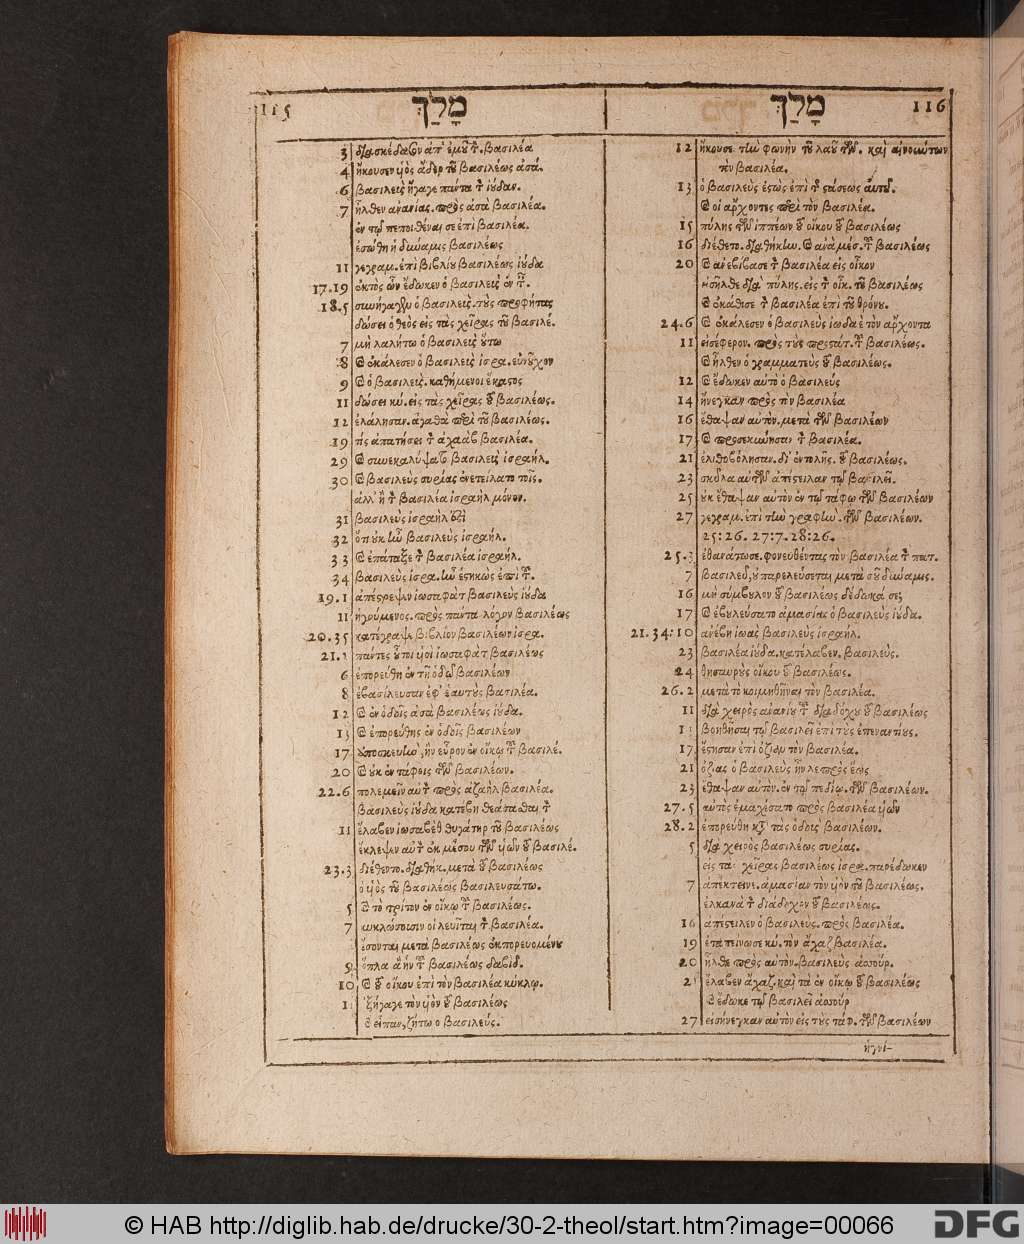 115 מָלַךְ
3 διασκέδασον ἀπ' ἐμοῦ τ̀. βασιλέα
4 ἤκουσεν υἱὸς ἄδερ τοῦ βασιλέως ἀσά.
6 βασιλεὺς ἤγαγε πάντα τ̀ ἰούδαν.
7 ἦλθεν ἀνανίας. πρὸς ἀσὰ βασιλέα.
ἐν τῷ πεποιθέναι σε ἐπὶ βασιλέα.
ἐσώθη ἡ δύναμις βασιλέως
11 γεγραμ. ἐπὶ βιβλίου βασιλέως ἰούδα
17.19 ἐκτὸς ὧν ἔδωκεν ὁ βασιλεὺς ἐν τ̃.
18.5 συνήγαγεν ὁ βασιλεὺς. τοὺς προφήτας
δώσει ὁ θεὸς εἰς τὰς χεῖρας τοῦ βασιλέ.
7 μὴ λαλήτω ὁ βασιλεὺς οὕτω
8 καὶ ἐκάλεσεν ὁ βασιλεὺς ἰσρα. εὐνοῦχον
9 καὶ ὁ βασιλεὺς. καθήμενοι ἕκαστος
11 δώσει κύ. εἰς τὰς χεῖρας τοῦ βασιλέως.
12 ἐλάλησαν. ἀγαθὰ περὶ τοῦ βασιλέως.
19 τίς ἀπατήσει τ̀ ἀχαὰβ βασιλέα.
29 καὶ συνεκαλύψατο βασιλεὺς ἰσραήλ.
30 καὶ βασιλεὺς συρίας ἐνετείλατο τοῖς.
ἀλλ' ἢ τ̀ βασιλέα ἰσραὴλ μόνον.
31 βασιλεὺς ἰσραήλ ὅδε
32 ὅτι οὐκ ἦν βασιλεὺς ἰσραήλ.
33 καὶ ἐπάταξε τ̀ βασιλέα ἰσραήλ.
34 βασιλεὺς ἰσρα. ἦν ἑστηκὼς ἐπὶ τ̃.
19.1 ἀπέστρεψεν ἰωσαφὰτ βασιλεὺς ἰούδα
11 ἡγούμενος. πρὸς πάντα λόγον βασιλέως
20.35 κατέγραψε βιβλίον βασιλέων ἰσρα.
21. πάντες οὗτοι υἱοὶ ἰωσαφὰτ βασιλέως
6 ἐπορεύθη ἐν τῇ ὁδῷ βασιλέων
8 ἐβασίλευσαν ἐφ' ἑαυτοὺς βασιλέα.
12 καὶ ἐν ὁδοῖς ἀσὰ βασιλέως ἰούδα.
13 καὶ ἐπορεύθης ἐν ὁδοῖς βασιλέων
17 ἀποσκευὴν, ἣν εὗρον ἐν οἴκῳ τ̃ βασιλέ.
20 καὶ οὐκ ἐν τάφοις τῶν βασιλέων.
22.6 πολεμεῖν αὐτ̀ πρὸς ἀζαὴλ βασιλέα.
βασιλεὺς ἰούδα κατέβη θεάσασθαι τ̀
11 ἔλαβεν ἰωσαβὲθ θυγάτηρ τοῦ βασιλέως
ἔκλεψεν αὐτ̀ ἐκ μέσου τῶν υἱῶν τοῦ βασιλέ.
23.3 διέθεντο. διαθήκ. μετὰ τοῦ βασιλέως
ὁ υἱὸς τοῦ βασιλέως βασιλευσάτω.
5 καὶ τὸ τρίτον ἐν οἴκῳ τ̃ βασιλέως.
7 κυκλώσουσιν οἱ λευῖται τ̀ βασιλέα.
ἔσονται μετὰ βασιλέως ἐκπορευομένου
9 ὅπλα ἃ ἦν τ̃ βασιλέως δαβίδ.
10 καὶ τοῦ οἴκου ἐπὶ τὸν βασιλέα κύκλῳ.
1 ἐξήγαγε τὸν υἱὸν τοῦ βασιλέως
καὶ εἶπαν, ζήτω ὁ βασιλεύς.
מָלַךְ 116
12 ἤκουσε τὴν φωνὴν τοῦ λαοῦ τῶν. καὶ αἰνούντων
τὸν βασιλέα.
13 ὁ βασιλεὺς ἑστὼς ἐπὶ τ̃ στάσεως αὐτοῦ.
καὶ οἱ ἄρχοντες περὶ τὸν βασιλέα.
15 πύλης τῶν ἱππέων τοῦ οἴκου τοῦ βασιλέως
16 διέθετο. διαθήκην. καὶ ἀνὰ μέσ. τ̃ βασιλέως
20 καὶ ἀνεβίβασε τ̀ βασιλέα εἰς οἶκον
εἰσῆλθε διὰ πύλης. εἰς τ̀ οἶκ. τοῦ βασιλέως
καὶ ἐκάθισε τ̀ βασιλέα ἐπὶ τοῦ θρόνου.
24.6 καὶ ἐκάλεσεν ὁ βασιλεὺς ἰωδαὲ τὸν ἄρχοντα
11 εἰσέφερον. πρὸς τοὺς προστάτ. τ̃ βασιλέως.
καὶ ἦλθεν ὁ γραμματεὺς τοῦ βασιλέως.
12 καὶ ἔδωκεν αὐτὸ ὁ βασιλεὺς
14 ἤνεγκαν πρὸς τὸν βασιλέα
16 ἔθαψαν αὐτὸν. μετὰ τῶν βασιλέων
17 καὶ προσεκύνησαν τ̀ βασιλέα.
21 ἐλιθοβόλησαν. δι' ἐντολῆς. τοῦ βασιλέως.
23 σκῦλα αὐτῶν ἀπέστειλαν τῷ βασιλεῖ.
25 οὐκ ἔθαψαν αὐτὸν ἐν τῷ τάφῳ τῶν βασιλέων
27 γεγραμ. ἐπὶ τὴν γραφὴν. τῶν βασιλέων.
25:26. 27:7. 28:26.
25.3 ἐθανάτωσε. φονεύσαντας τὸν βασιλέα τ̀ πατ.
7 βασιλεῦ, οὐ παρελεύσεται μετὰ σοῦ δύναμις.
16 μὴ σύμβουλον τοῦ βασιλέως δέδωκά σε;
17 καὶ ἐβουλεύσατο ἀμασίας ὁ βασιλεὺς ἰούδα.
21.34:10 ἀνέβη ἰωὰς βασιλεὺς ἰσραήλ.
23 βασιλέα ἰούδα. κατέλαβεν. βασιλεὺς.
24 θησαυροὺς οἴκου τοῦ βασιλέως.
26.2 μετὰ τὸ κοιμηθῆναι τὸν βασιλέα.
11 διὰ χειρὸς ἀνανίου τ̃ διαδόχου τοῦ βασιλέως
13 βοηθῆσαι τῷ βασιλεῖ ἐπὶ τοὺς ὑπεναντίους.
17 ἔστησαν ἐπὶ ὀζίαν τὸν βασιλέα.
21 ὀζίας ὁ βασιλεὺς ἦν λεπρὸς ἕως
23 ἔθαψαν αὐτὸν. ἐν τῷ πεδίῳ. τῶν βασιλέων.
27.5 αὐτὸς ἐμαχέσατο πρὸς βασιλέα υἱῶν
28.2 ἐπορεύθη κτ̀ τὰς ὁδοὺς βασιλέων.
5 διὰ χειρὸς βασιλέως συρίας.
εἰς τὰς χεῖρας βασιλέως ἰσρα. παρέδωκεν
7 ἀπέκτεινε. ἀμασίαν τὸν υἱὸν τοῦ βασιλέως.
ἐλκανὰ τ̀ διάδοχον τοῦ βασιλέως.
16 ἀπέστειλεν ὁ βασιλεὺς. πρὸς βασιλέα.
19 ἐταπείνωσε κύ. τὸν ἄχαζ βασιλέα.
20 ἦλθε πρὸς αὐτὸν. βασιλεὺς ἀσσούρ.
2 ἔλαβεν ἄχαζ. καὶ τὰ ἐν οἴκῳ τοῦ βασιλέως
καὶ ἔδωκε τῷ βασιλεῖ ἀσσούρ
27 εἰσήνεγκαν αὐτὸν εἰς τοὺς τάφ. τῶν βασιλέων
ἡγνί-
© HAB http://diglib.hab.de/drucke/30-2-theol/start.htm?image=00066 DFG